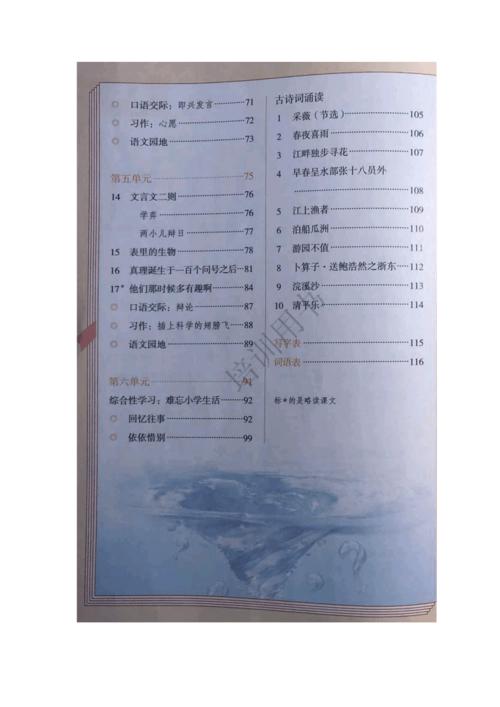 ◎ 口语交际：即兴发言…………71
◎ 习作：心愿…………72
◎ 语文园地…………73
第五单元…………75
14 文言文二则…………76
学弈…………76
两小儿辩日…………77
15 表里的生物…………78
16 真理诞生于一百个问号之后…81
17* 他们那时候多有趣啊…………84
◎ 口语交际：辩论…………87
◎ 习作：插上科学的翅膀飞…88
◎ 语文园地…………89
第六单元…………91
综合性学习：难忘小学生活…………92
◎ 回忆往事…………92
◎ 依依惜别…………99
古诗词诵读
1 采薇（节选）…………105
2 春夜喜雨…………106
3 江畔独步寻花…………107
4 早春呈水部张十八员外
…………108
5 江上渔者…………109
6 泊船瓜洲…………110
7 游园不值…………111
8 卜算子·送鲍浩然之浙东…112
9 浣溪沙…………113
10 清平乐…………114
写字表…………115
词语表…………116
标*的是略读课文
培训用书